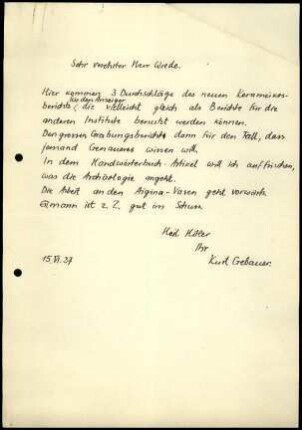 Sehr verehrter Herr Wrede.
Hier kommen 3 Durchschläge des neuen Kerameikos-
für den Anzeiger
berichts, die vielleicht gleich als Berichte für die
anderen Institute benutzt werden können.
Den grossen Grabungsbericht dann für den Fall, dass
jemand Genaueres wissen will.
In dem Handwörterbuch-Artikel will ich auffrischen,
was die Archäologie angeht.
Die Arbeit an den Aigina-Vasen geht vorwärts
ist z. Z. gut im Strum
Heil Hitler
Ihr
15. VI. 37
Kurt Gebauer.